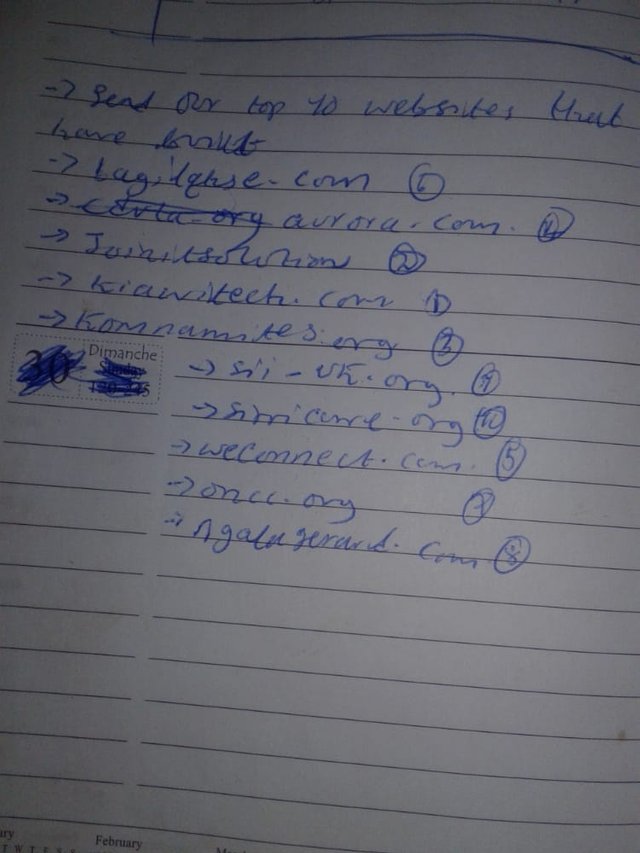 -> Send our top 10 websites that
have built
-> com ⑥
-> aurora.com. ④
-> Joinitsolution ②
-> Kiawitech.com ①
-> Komnamites.org ③
30 Dimanche
Sunday
-> sii-uk.org. ⑨
-> .org ⑩
-> weconnect.com. ⑤
-> oncc.org ⑦
-> .com ⑧
February